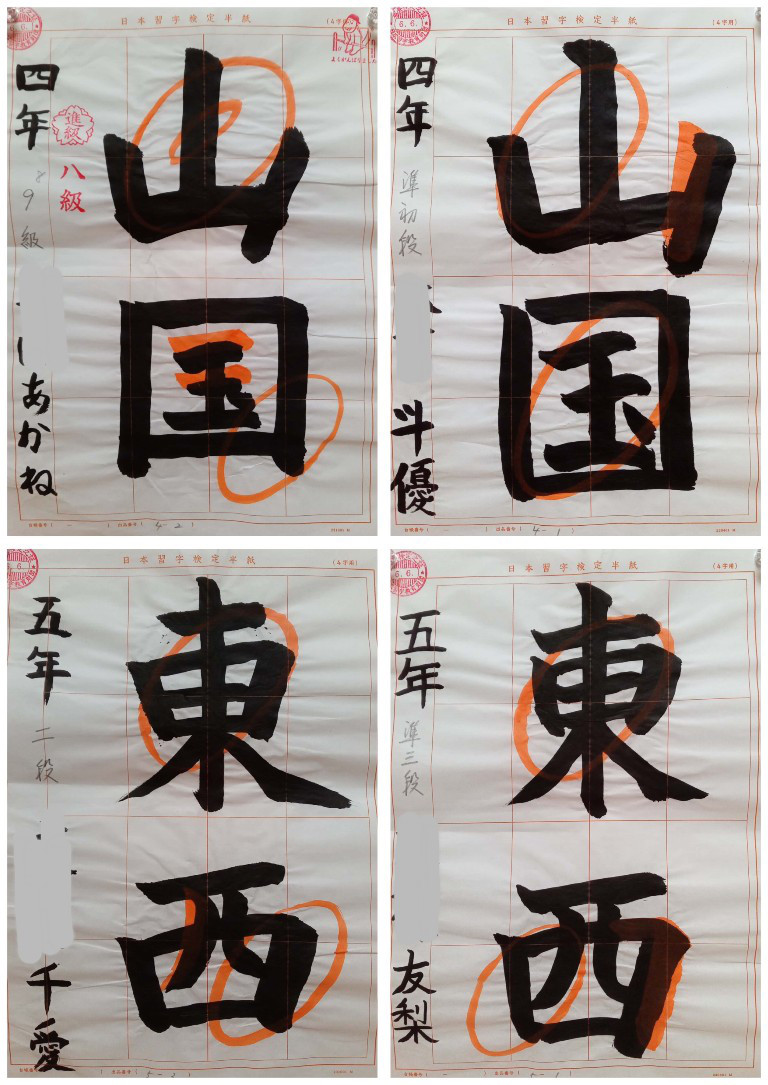 日本習字検定半紙
(4字用)
6.6.
よくがんばりました
山国
四年
9級
8
進級
八級
あかね
4-2
日本習字検定半紙
(4字用)
6.6.
山国
四年
準初段
斗優
4-1
日本習字検定半紙
(4字用)
6.6.
東西
五年
二段
千愛
日本習字検定半紙
(4字用)
6.6.
東西
五年
準三段
友梨
5-1